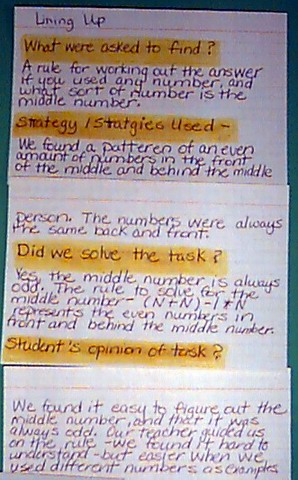 Lining Up
What were asked to find?
A rule for working out the answer
if you used any number, and
what sort of number is the
middle number.
Strategy / Statgies Used -
We found a patteren of an even
amount of numbers in the front
of the middle and behind the middle
person. The numbers were always
the same back and front.
Did we solve the task?
Yes, the middle number is always
odd. The rule to solve for the
middle number - (N+N) - 1 * N
represents the even numbers in
front and behind the middle number.
Student's opinion of task?
We found it easy to figure out the
middle number, and that it was
always odd. Our teacher guided us
on the rule - we found it hard to
understand - but easier when we,
used different numbers as examples